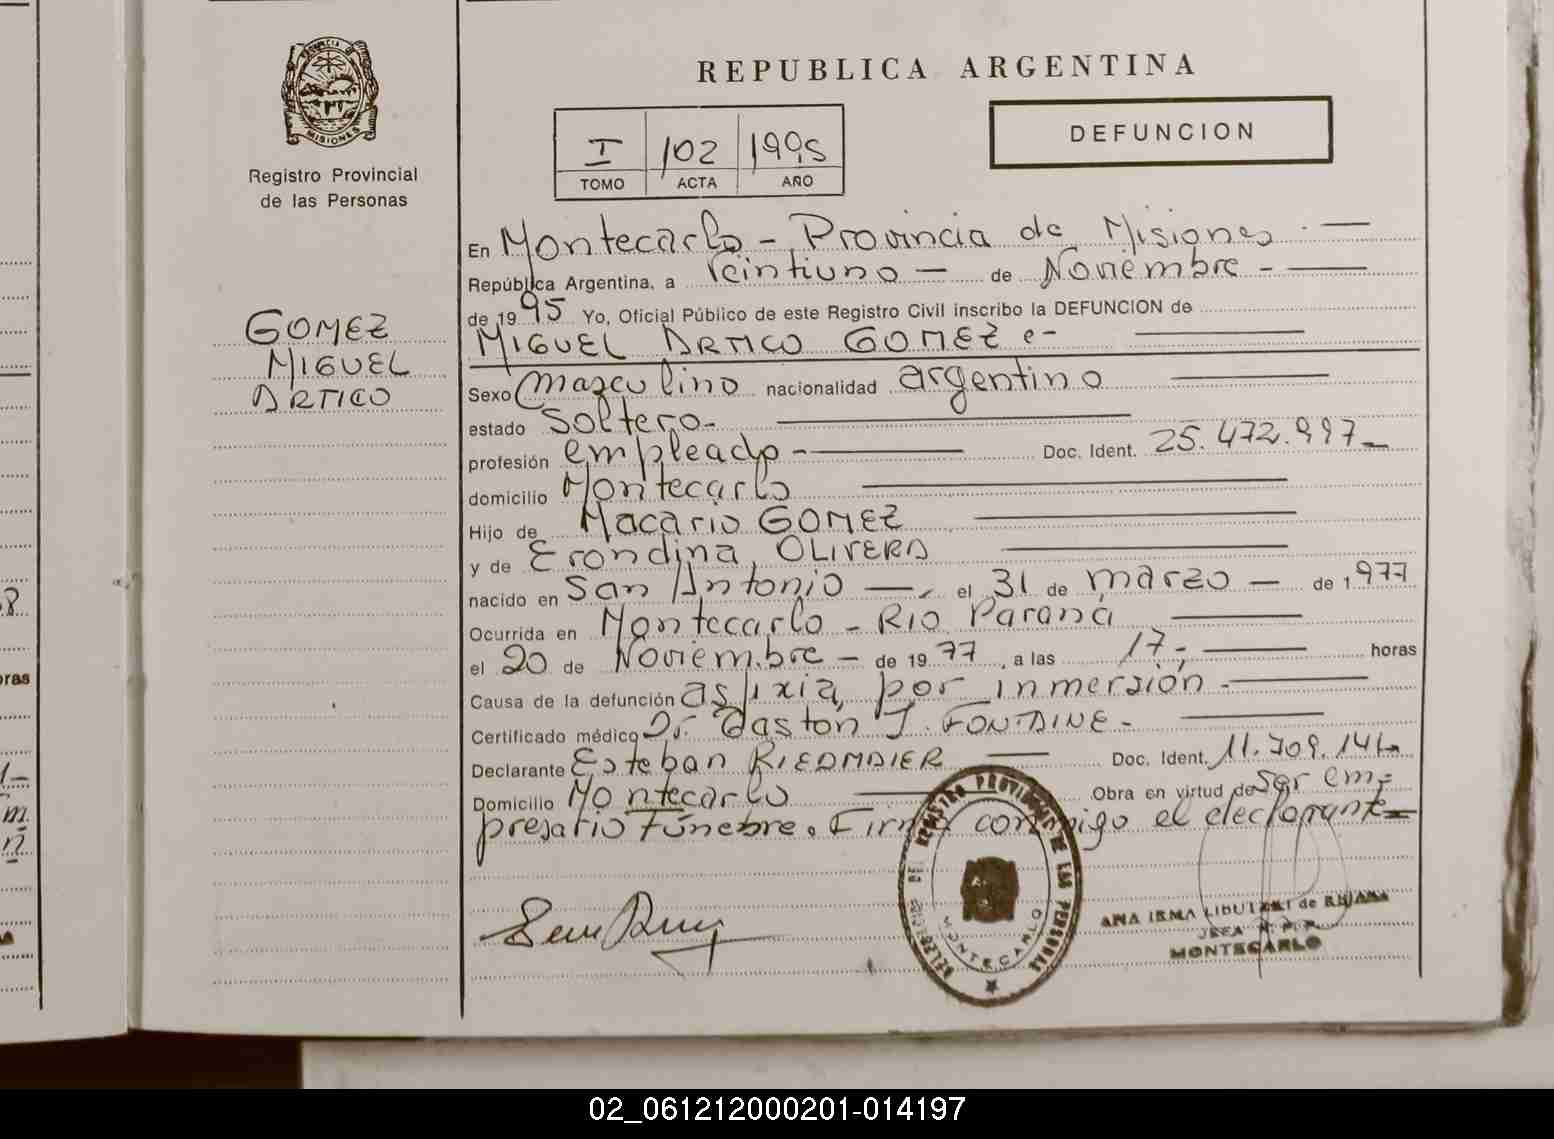 REPUBLICA ARGENTINA
PROVINCIA D
MISIONES
Registro Provincial
de las Personas
I 102 1995
TOMO ACTA AÑO
DEFUNCION
GOMEZ
MIGUEL
ARTICO
En Montecarlo - Provincia de Misiones. —
República Argentina, a Veintiuno — de Noviembre - —
de 1995 Yo, Oficial Público de este Registro Civil inscribo la DEFUNCION de
MIGUEL ARTICO GOMEZ e- —
Sexo masculino nacionalidad argentino —
estado soltero- —
profesión empleado - — Doc. Ident. 25.472.997-
domicilio Montecarlo —
Hijo de Macario GOMEZ —
y de Erondina OLIVERA —
nacido en San Antonio — el 31 de marzo — de 1977
Ocurrida en Montecarlo - Rio Paraná —
el 20 de Noviembre - de 1977, a las 17,- — horas
Causa de la defunción asfixia por inmersión - —
Certificado médico Dr. Gaston J. FONTAINE - —
Declarante Esteban RIEDMAIER — Doc. Ident. 11.709.141-
Domicilio Montecarlo — Obra en virtud de ser em=
presario fúnebre. Firma conmigo el declarante=
DELEGACION DEL REGISTRO PROVINCIAL DE LAS PERSONAS
MONTECARLO
ANA IRMA de
MONTECARLO
8
oras
1-
m
n
02_061212000201-014197